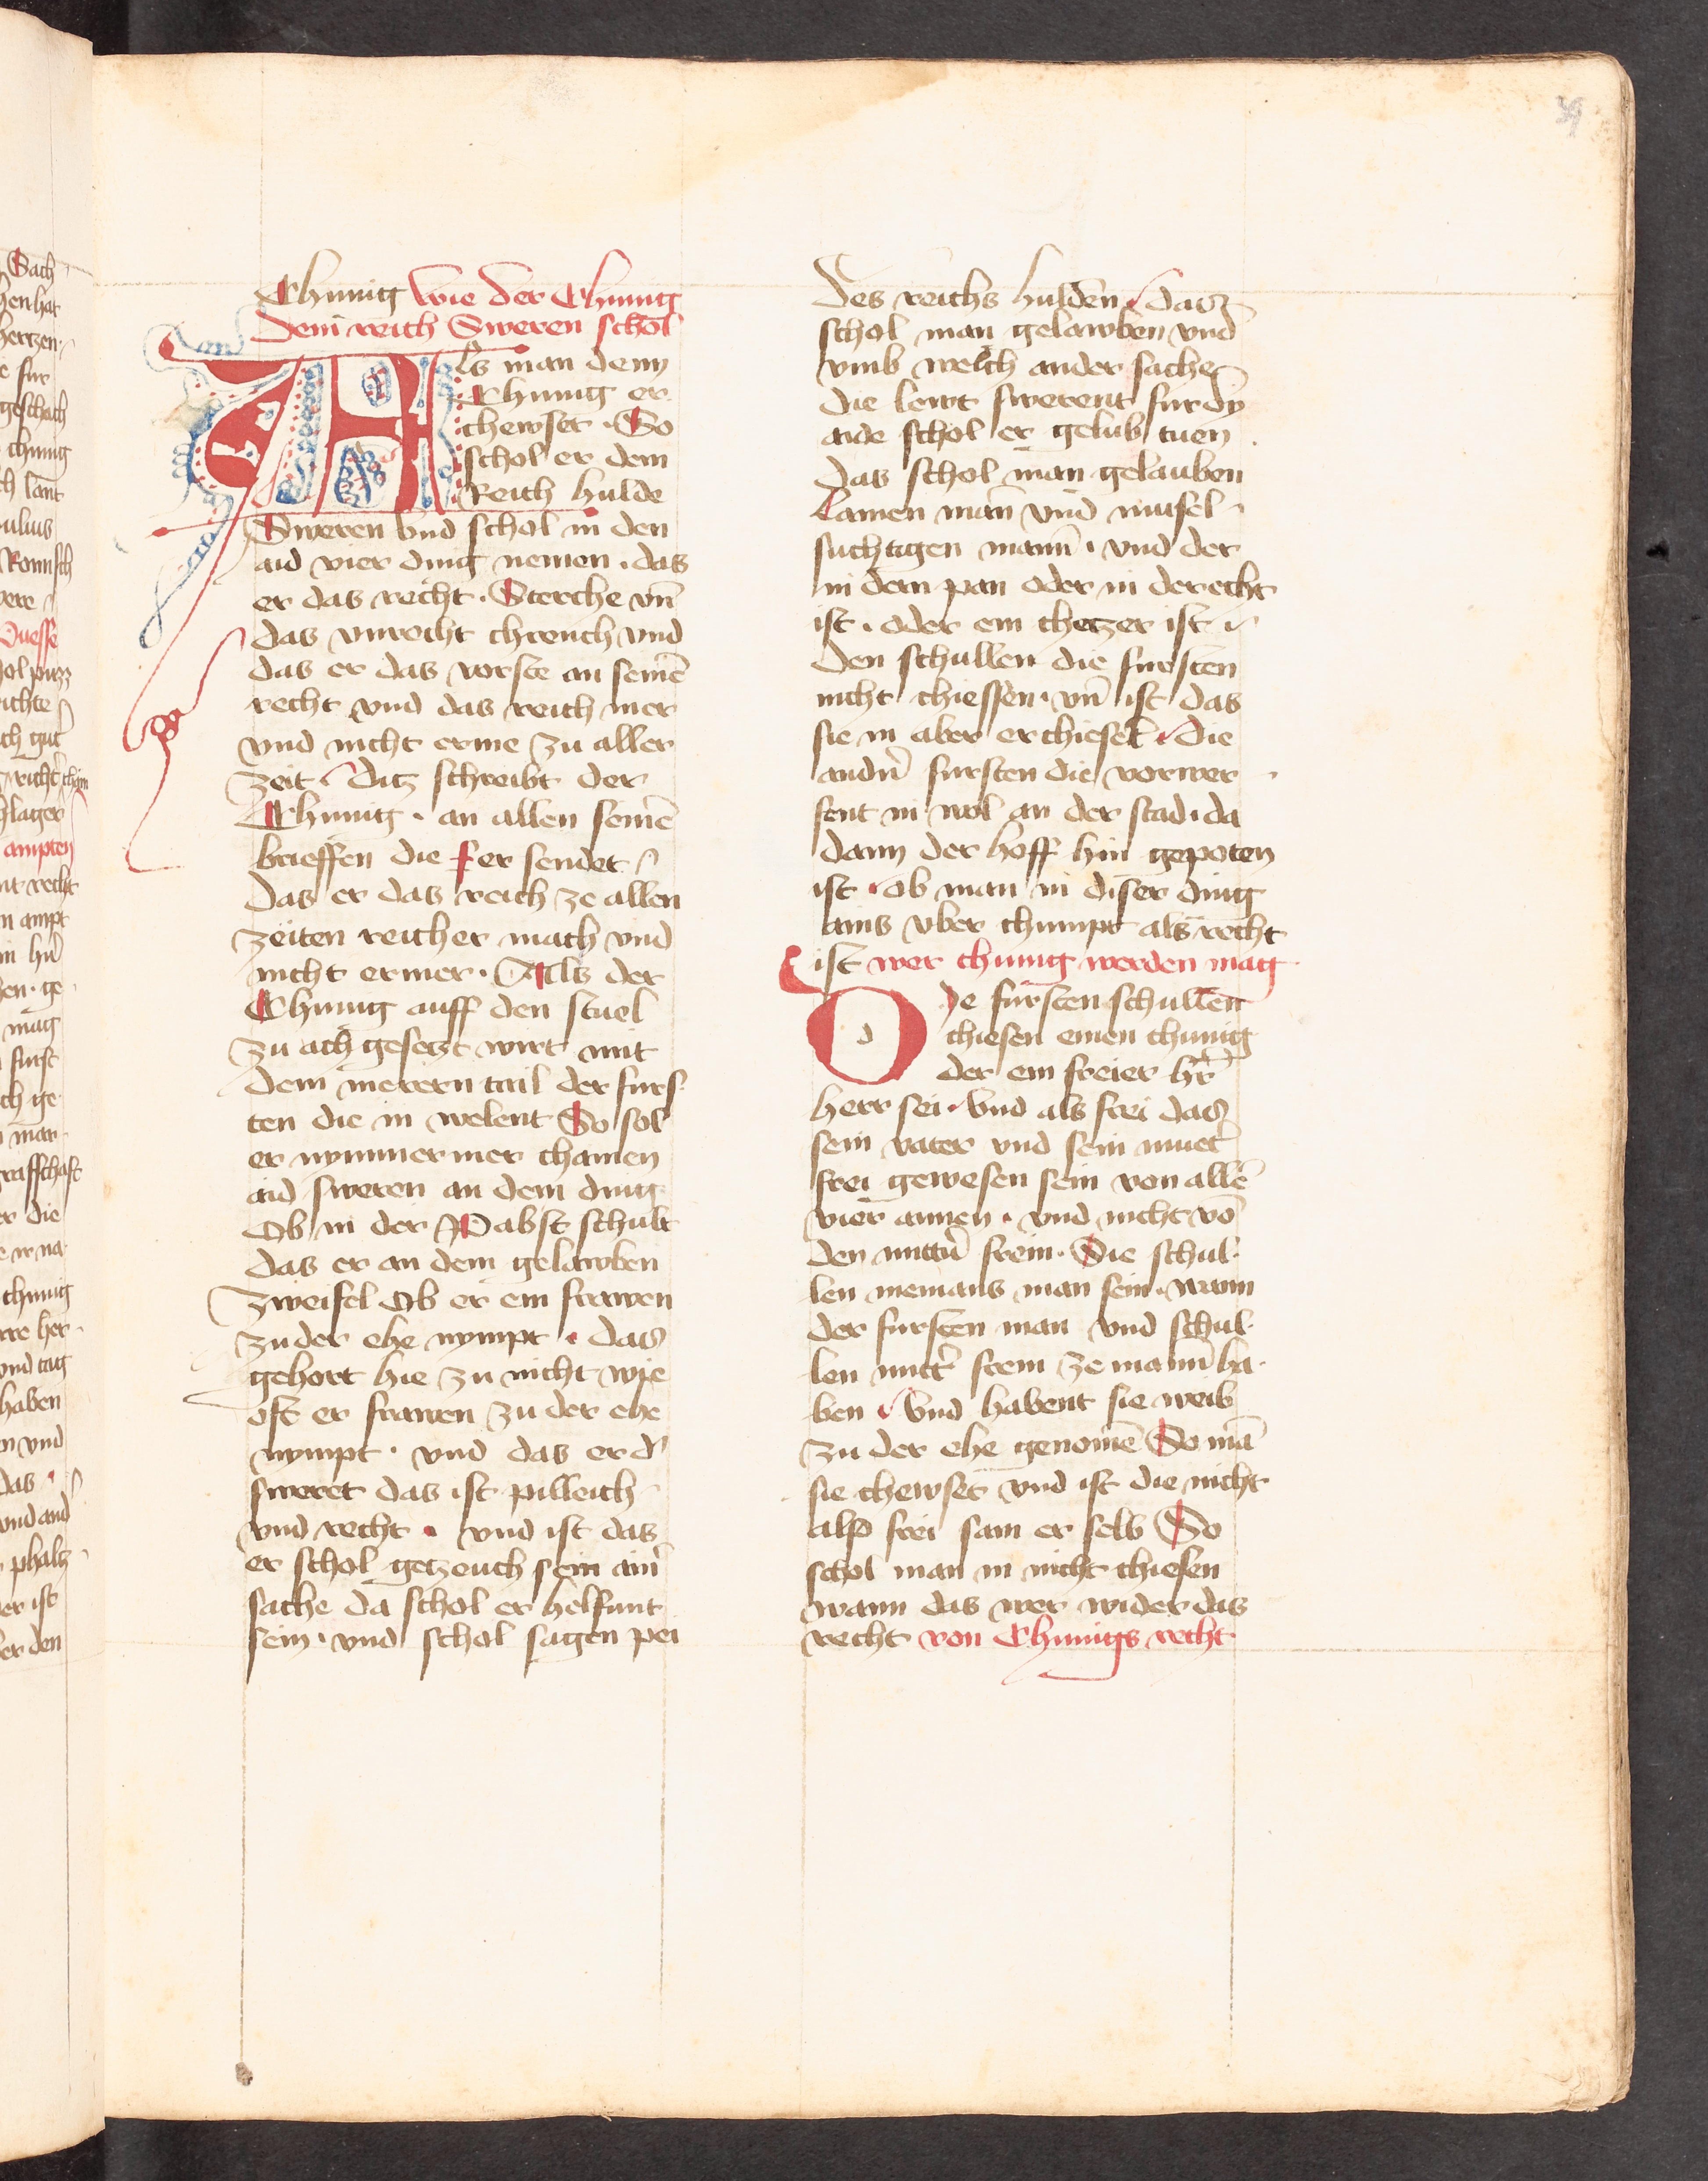 39
Chunig wie der Chunig
dem reich Sweren schol
Als man denn
Chunig er
chewset · So
schol er dem
Reich hulde
Sweren vnd schol in den
aid vier ding nemen · das
er das recht · Sterche vn̄
das vnrecht chrench vnd
das er das vorste an seinē
recht vnd das reich mer
vnd nicht erme zu aller
zeit · Ditz schreibt der
Chunig · an allen seinē
brieffen die er sendet
das er das reich ze allen
zeiten reicher mach vnd
nicht ermer · Als der
Chunig auff den stuel
zu ach gesetzt wirt mit
dem merern tail der furs
ten die in welent So sol
er nymmermer chainen
aid sweren an dem ding
Ob in der Pabst schult
das er an dem gelawben
zweifel Ob er ein frawen
zu der ehe nympt · das
gehort hie zu nicht wie
oft er frawen zu der ehe
nympt · vnd das er d'
sweret das ist pilleich
vnd recht · vnd ist das
er schol getzeuch sein ain̄
sache da schol er helfunt
sein · vnd schol sagen pei
des reichs hulden · das
schol man gelawben vnd
vmb welch ander sache
die lewt swerent fur dy
aide schol er gelub tuen
das schol man gelauben
Lamen man̄ vnd misel
suchtigen mann̄ · vnd der
in dem pan oder in der echt
ist · oder ein chetzer ist
den schullen die fursten
nicht chiessen · vn̄ ist das
sie in aber erchiesēt · Die
andn̄ fursten die vorwer
fent in wol an der stad · da
dann der hoff hin gepoten
ist · ob man in diser ding
ains vber chumpt als recht
ist wer chunig werden mag
Dye fursten schullen
chiesen einen chunig
der ein freier hr̄
herr sei · vnd als frei das
sein vater vnd sein muet̄
frei gewesen sein von allē
vier annen · vnd nicht vō
den mittn̄ frein · Die schul
len niemans man sein · wann
der fursten man vnd schul
len mitt̄ frein ze mann̄ ha
ben · vnd habent sie weib
zu der ehe genomē So mā
sie chewset vnd ist die nicht
also frei sam er selb So
schol man in nicht chiesen
wann das wer wider das
recht von Chunigs recht